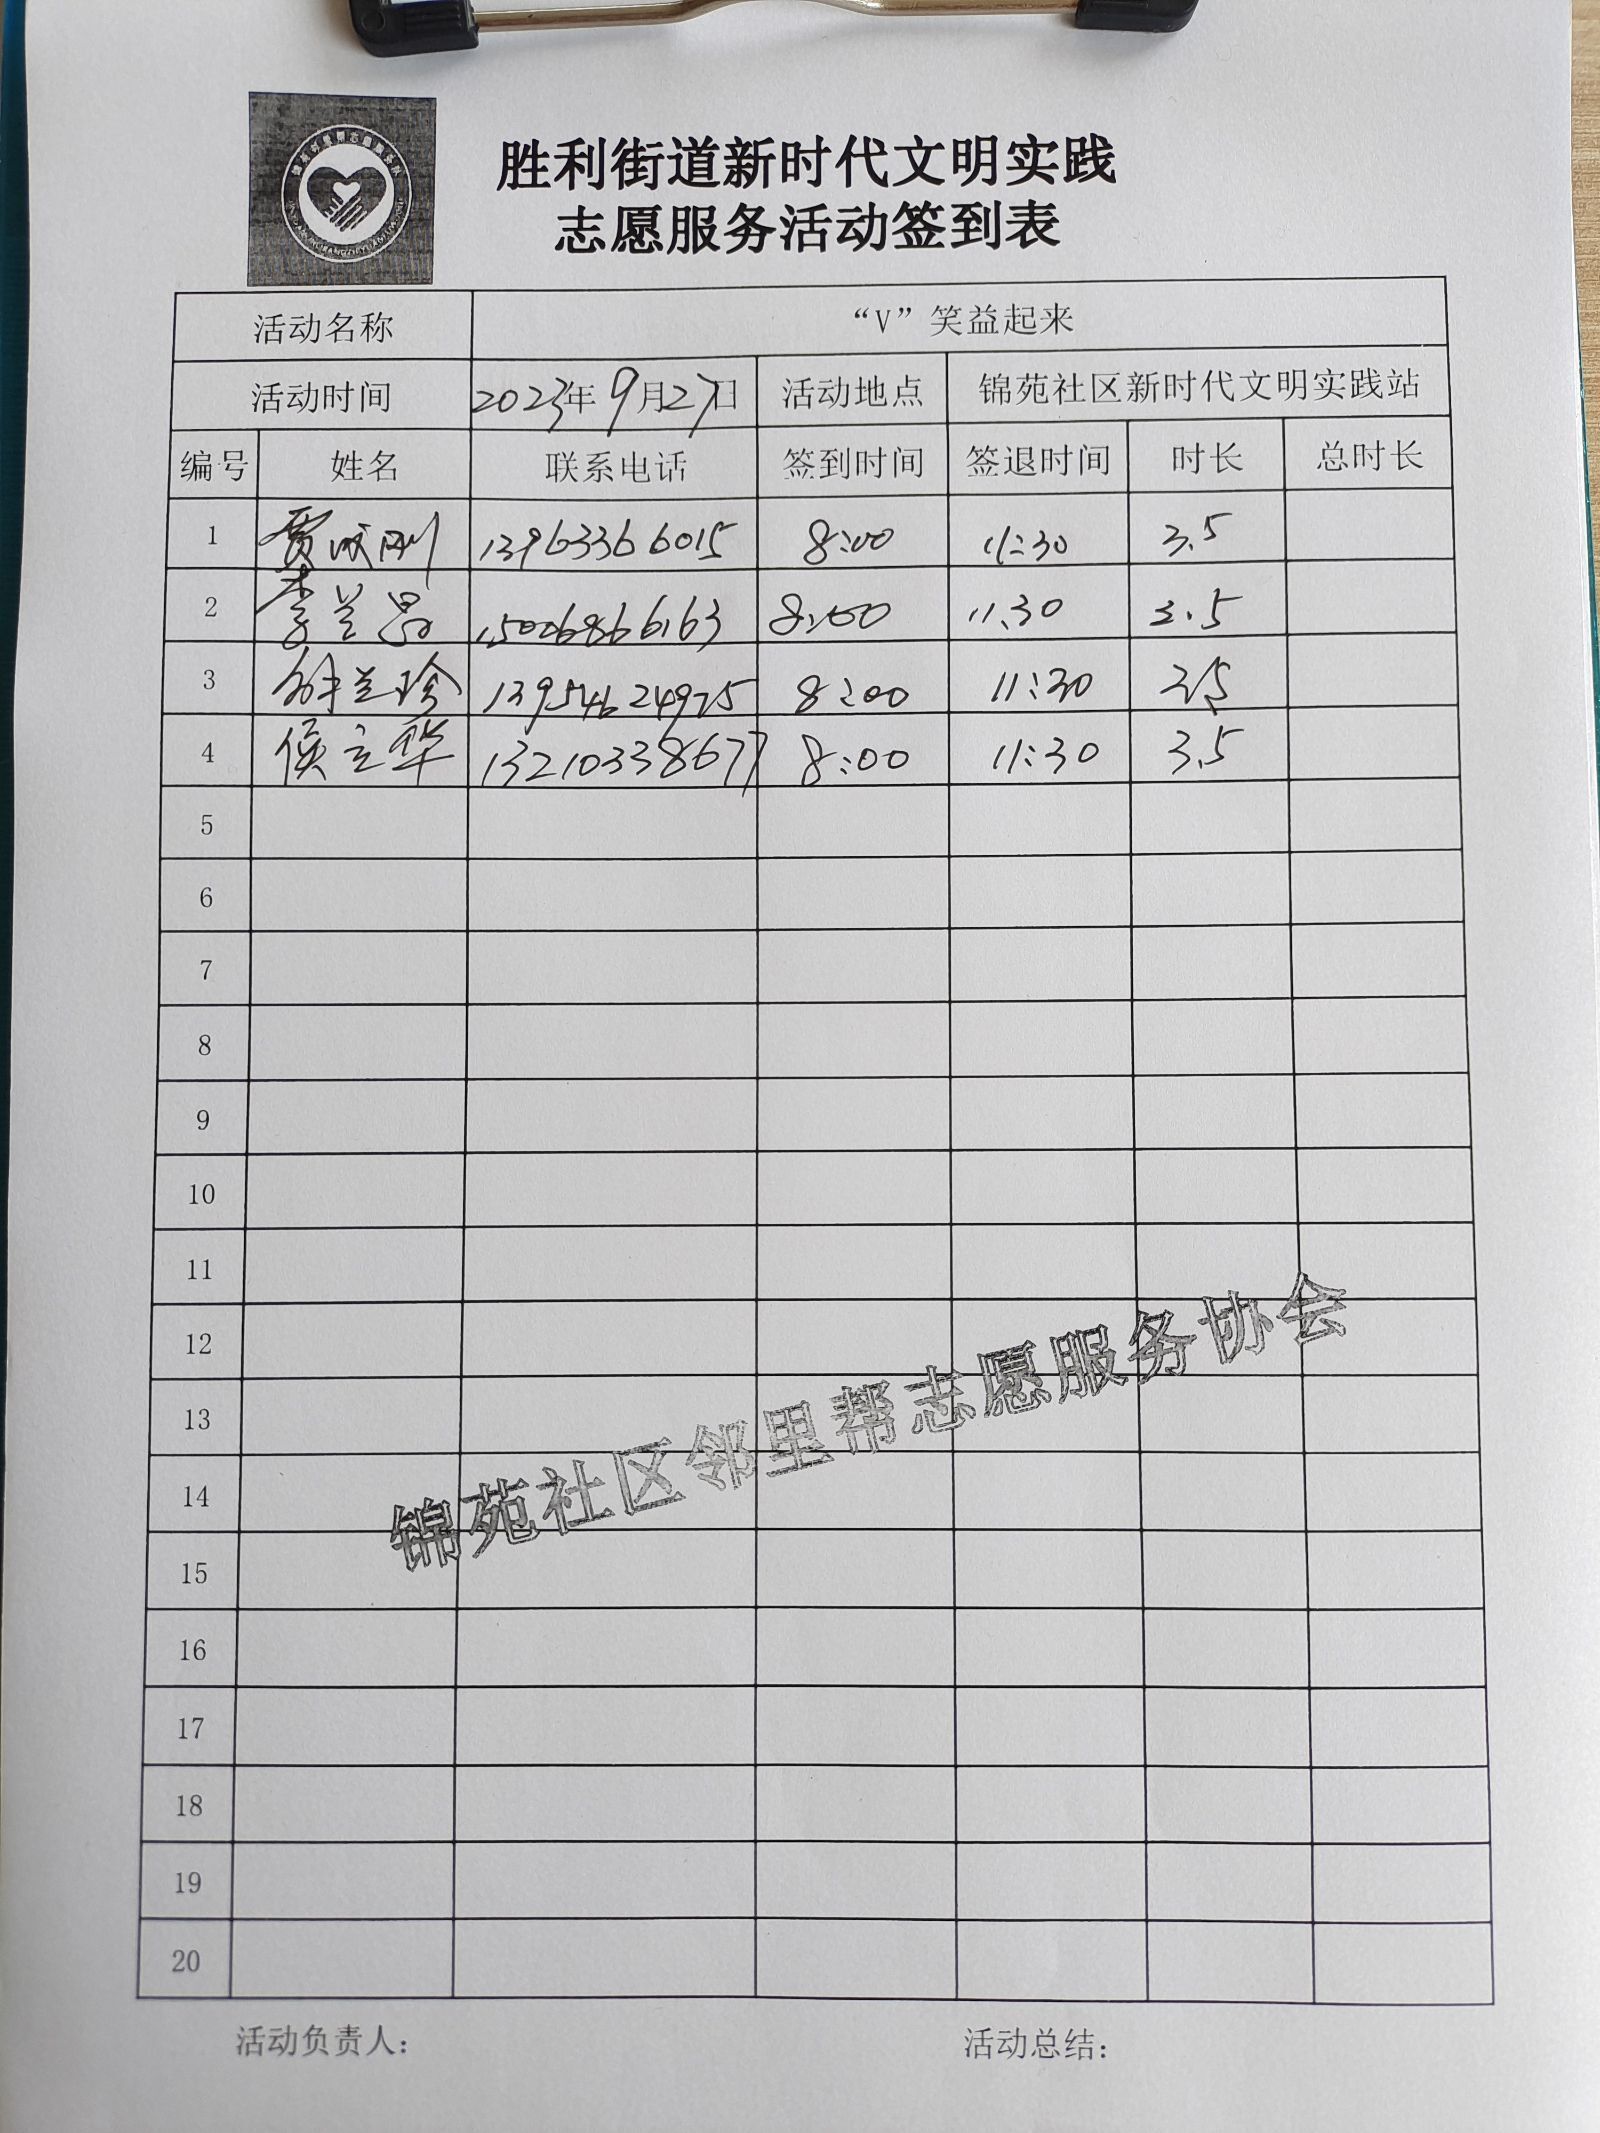 胜利街道新时代文明实践
志愿服务活动签到表
活动名称 “V”笑益起来
活动时间 2023年9月27日 活动地点 锦苑社区新时代文明实践站
编号 姓名 联系电话 签到时间 签退时间 时长 总时长
1 13963366015 8:00 11:30 3.5
2 李兰 15006866163 8:00 11:30 3.5
3 兰珍 13954624975 8:00 11:30 3.5
4 侯立华 13210338677 8:00 11:30 3.5
5
6
7
8
9
10
11
12
13
14
15
16
17
18
19
20
锦苑社区邻里帮志愿服务协会
活动负责人: 活动总结: